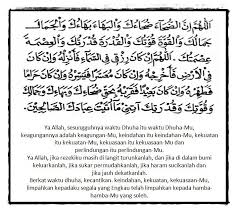 اللهم إن الضحاء ضحاءك والبهاء بهاءك والجمال
جمالك والقوة قوتك والقدرة قدرتك والعصمة
عصمتك اللهم إن كان رزقي في السماء فأنزله وإن كان
في الأرض فأخرجه وإن كان معسرا فيسره وإن كان حراما
فطهره وإن كان بعيدا فقربه بحق ضحاءك وبهاءك وجمالك
وقوتك وقدرتك آتني ما أتيت عبادك الصالحين.
Ya Allah, sesungguhnya waktu Dhuha itu waktu Dhuha-Mu,
keagungannya adalah keagungan-Mu, keindahan itu keindahan-Mu, kekuatan
itu kekuatan-Mu, kekuasaan itu kekuasaan-Mu dan
perlindungan itu perlindungan-Mu.
Ya Allah, jika rezekiku masih di langit turunkanlah, dan jika di dalam bumi
keluarkanlah, jika sukar permudahkanlah, jika haram sucikanlah dan
jika jauh dekatkanlah.
Berkat waktu dhuha, kecantikan, keindahan, kekuatan, kekuasaan-Mu,
limpahkan kepadaku segala yang Engkau telah limpahkan kepada hamba-
hamba-Mu yang soleh.